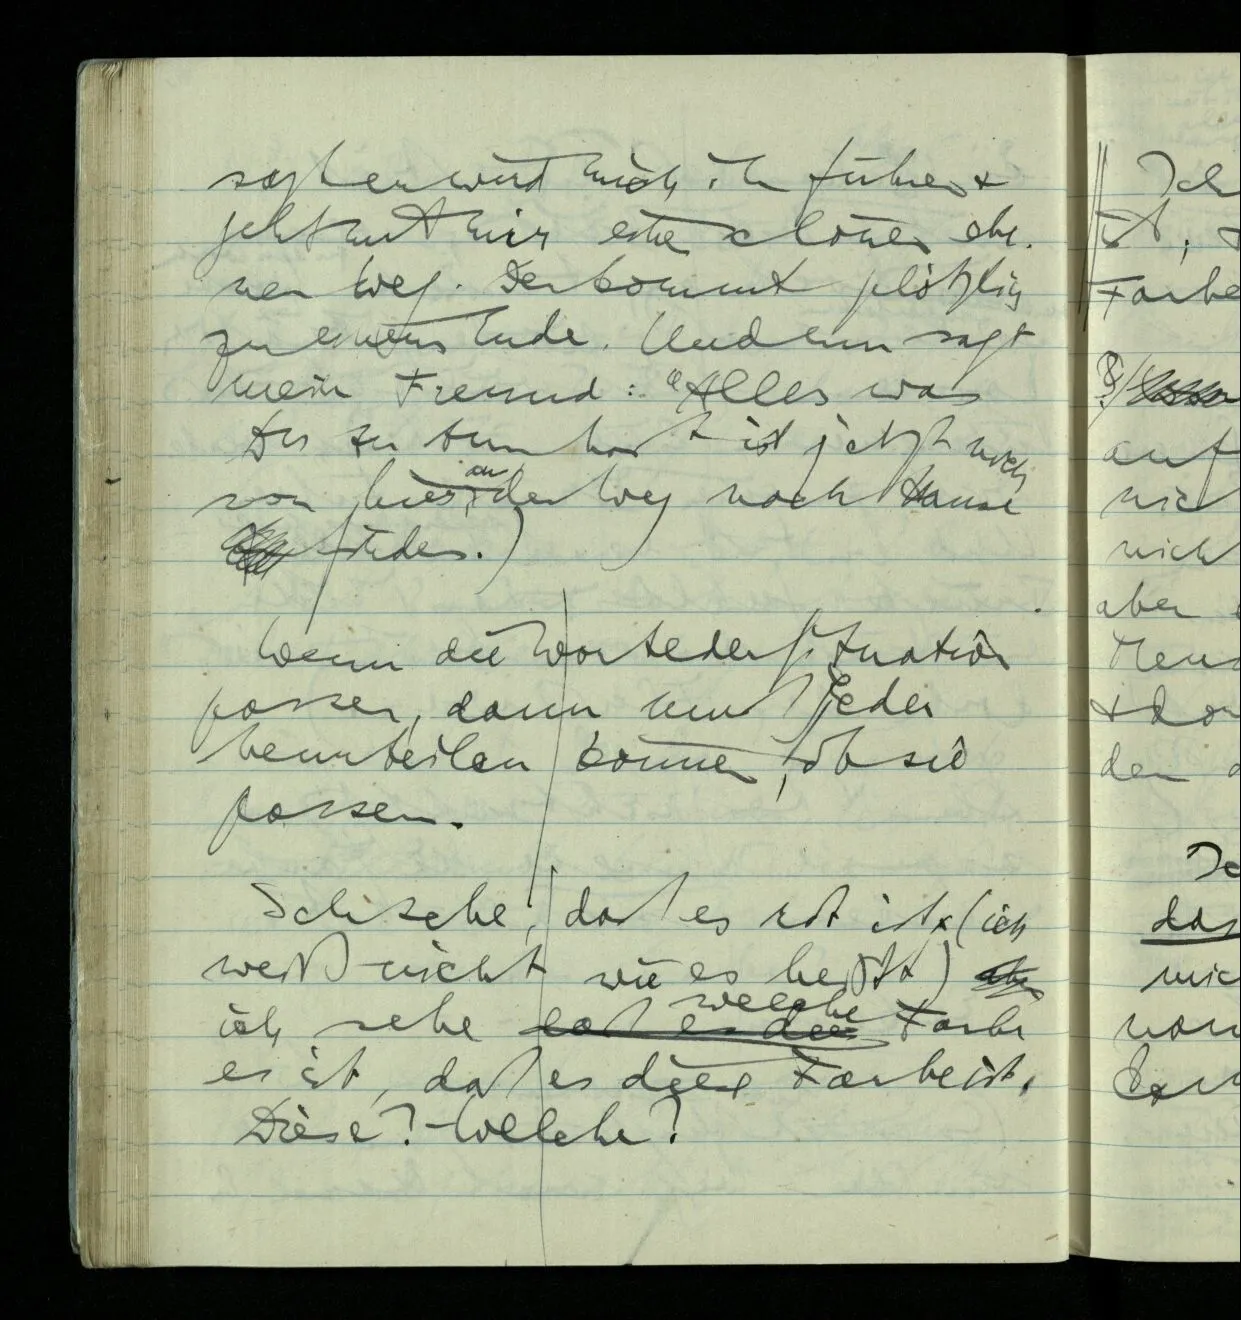 sagt er werde mich ihn führen &
geht mit mir eine schönen ebe-
nen Weg. Der kommt plötzlich
zu einem Ende. Und nun sagt
mein Freund: "Alles was
Du zu tun hast ist jetzt noch
von hier an den Weg nach Hause
finden.)
Wenn die Worte der Situation
passen, dann muß Jeder
beurteilen können, ob sie
passen.
Ich sehe, daß es rot ist, (ich
weiß nicht wie es heißt) aber
ich sehe daß es die welche Farbe
es ist, daß es diese Farbe ist.
Diese? – Welche?
Ich
ist,
Farbe
auf
nic
nich
aber
Men
& da
den
Ic
das
mic
von